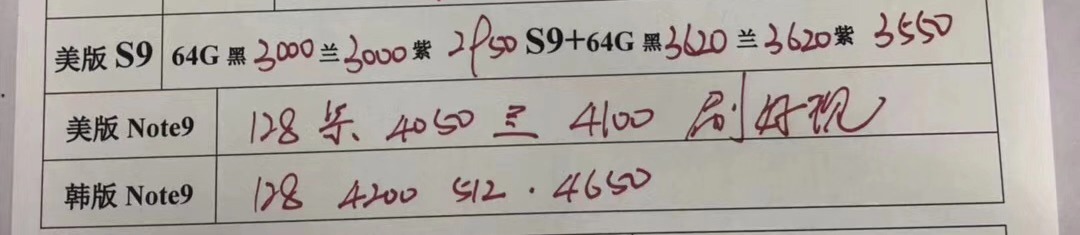 美版 S9 64G 黑 3000 兰 3000 紫 2950 S9+64G 黑 3620 兰 3620 紫 3550
美版 Note9 128 紫 4050 兰 4100 刷好现
韩版 Note9 128 4200 512 . 4650